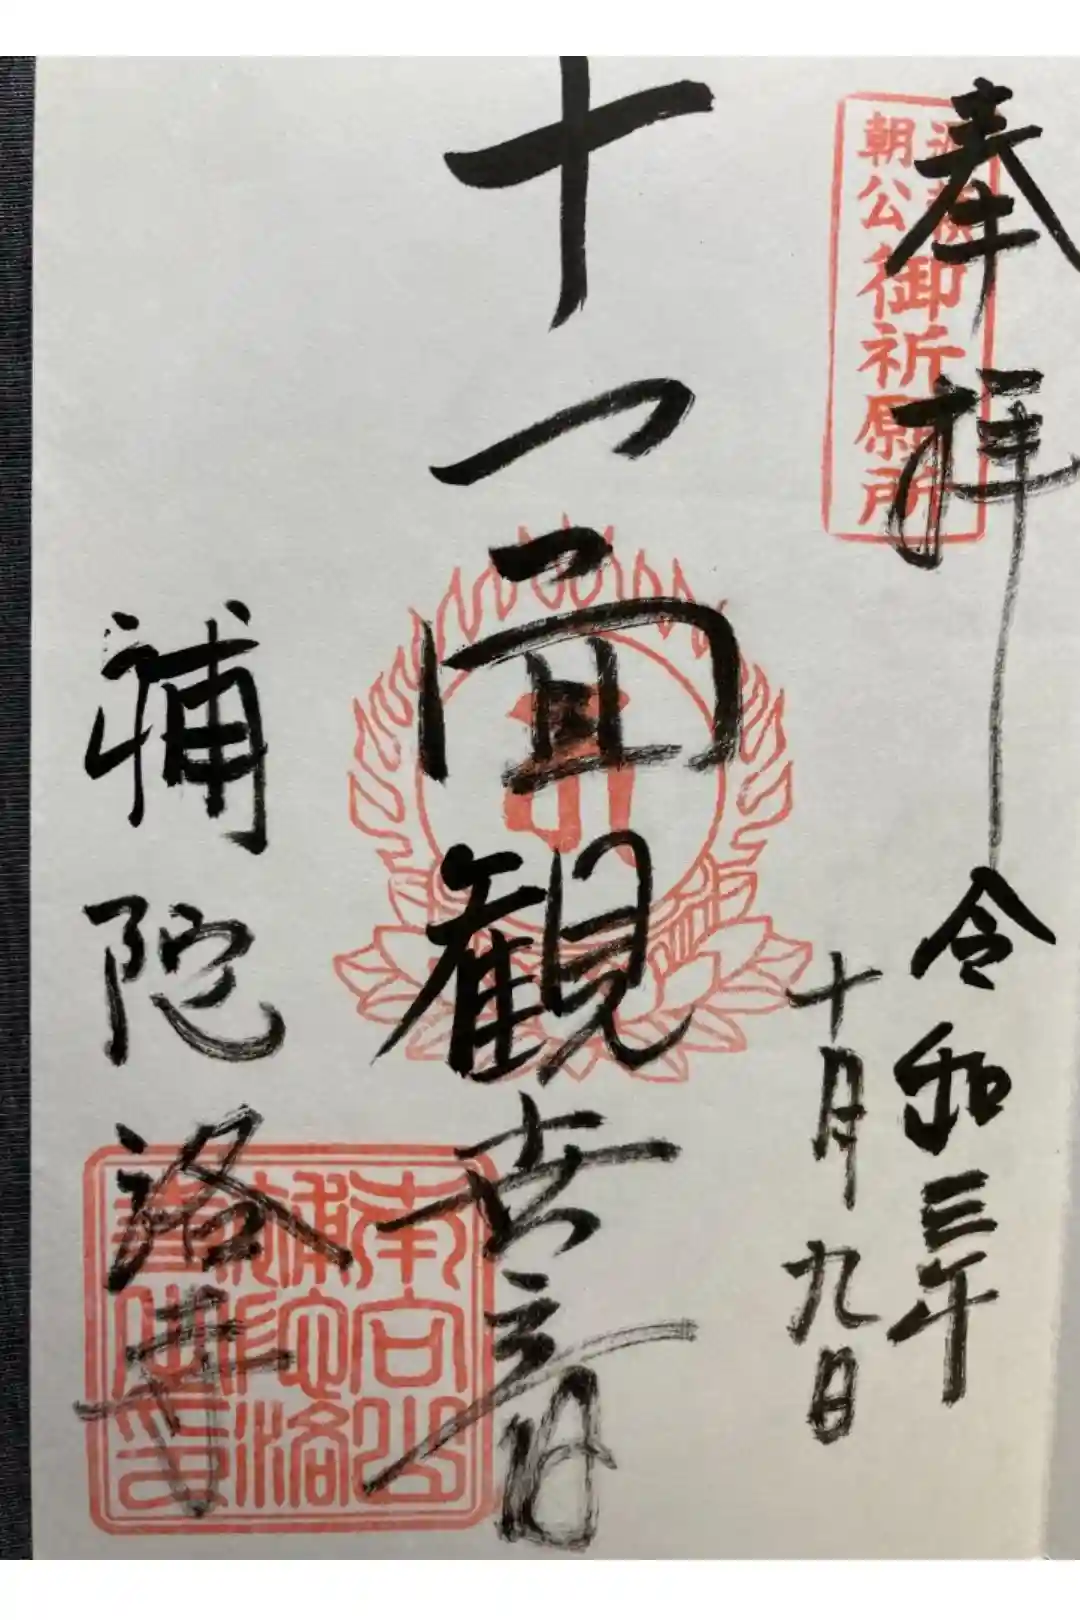 奉拝
令和三年
十月九日
源頼
朝公
御祈願所
十一面観世音
補陀洛寺
南向山
補陀洛